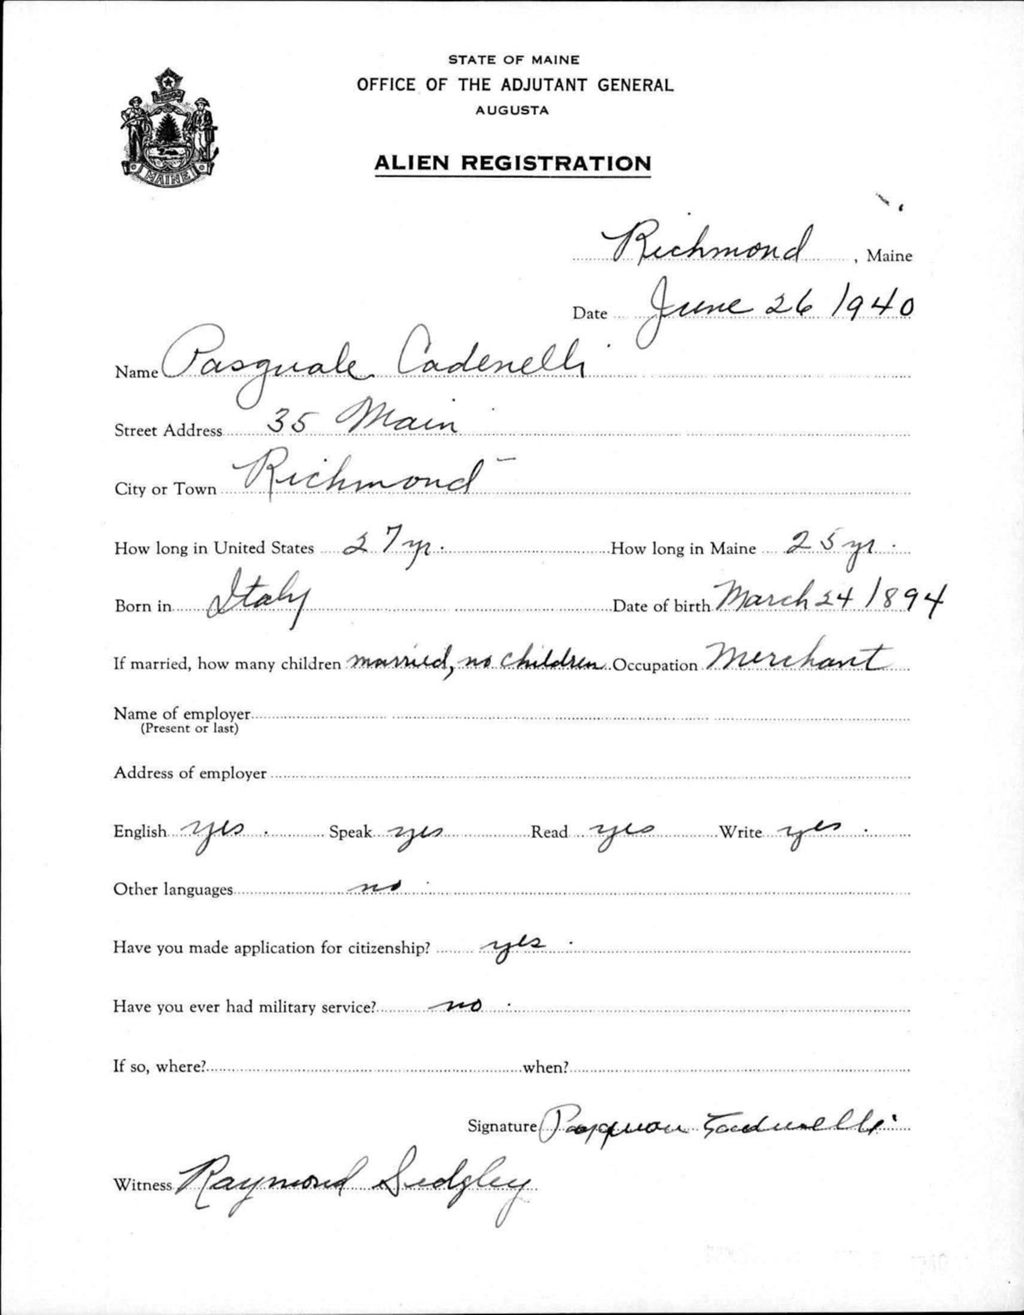 STATE OF MAINE
OFFICE OF THE ADJUTANT GENERAL
AUGUSTA
ALIEN REGISTRATION
MAINE
Richmond, Maine
Date June 26 1940
Name Pasquale Cadenelli
Street Address 35 Main
City or Town Richmond
How long in United States 27 yr. How long in Maine 25 yr.
Born in Italy Date of birth March 24 1894
If married, how many children married, no children Occupation Merchant
Name of employer
(Present or last)
Address of employer
English yes. Speak yes Read yes Write yes.
Other languages no.
Have you made application for citizenship? yes.
Have you ever had military service? no.
If so, where? when?
Signature
Witness Raymond Sedgley